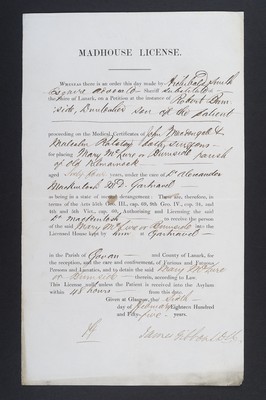 MADHOUSE LICENSE.
WHEREAS there is an order this day made by Archibald Smith
Esquire advocate Sheriff Substitute of
the Shire of Lanark, on a Petition at the instance of Robert
son of the patient
proceeding on the Medical Certificates of John and
Malcolm both, surgeons
for placing Mary McLure or Burnside parish
of Old Kilmarnock
aged years, under the care of Dr Alexander
Mackintosh M.D. Gartnavel
as being in a state of mental derangement: These are, therefore, in
terms of the Acts 55th Geo. III., cap. 69, 9th Geo. IV., cap. 34, and
4th and 5th Vict., cap. 60, Authorising and Licensing the said
Dr Mackintosh to receive the person
of the said Mary McLure or Burnside into the
Licensed House kept by him at Gartnavel
in the Parish of Govan and County of Lanark, for
the reception, and the care and confinement, of Furious and Fatuous
Persons and Lunatics, and to detain the said Mary McLure
or Burnside therein, according to Law.
This License null, unless the Patient is received into the Asylum
within 48 hours from this date.
Given at Glasgow, the Sixth
day of February Eighteen Hundred
and Fifty-five years.